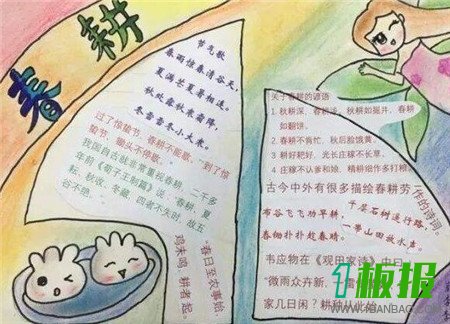 春耕
节气歌
春雨惊春清谷天,
夏满芒夏暑相连。
秋处露秋寒霜降,
冬雪雪冬小大
过了惊蛰节,春耕不能歇""到了惊
蛰节,锄头不停歇。"
我国自古就非常重视春耕,二千多
年前《荀子王制篇》说"春耕、夏
耘、秋收、冬藏,四者不失时,故五
谷不绝。
"春日至农事始,
鸡未鸣,耕者起。
关于春耕的谚语
1. 秋耕深,春耕浅,秋耕如掘井,春耕
如翻饼。
2 春耕不肯忙,秋后脸饿黄。
3 耕好耙好,光长庄稼不长草。
4 庄稼不认爹和娘,精耕细作多打粮。
古今中外有很多描绘春耕劳作的诗词。
布谷飞飞劝早耕,
春锄扑扑趁春晴。
千层石树遥行路,
一带山田放水声。
韦应物在《观田家诗》中曰:
"微雨众卉新,一雷
家几日闲?耕种从此始
1板报
1BANBAO.COM